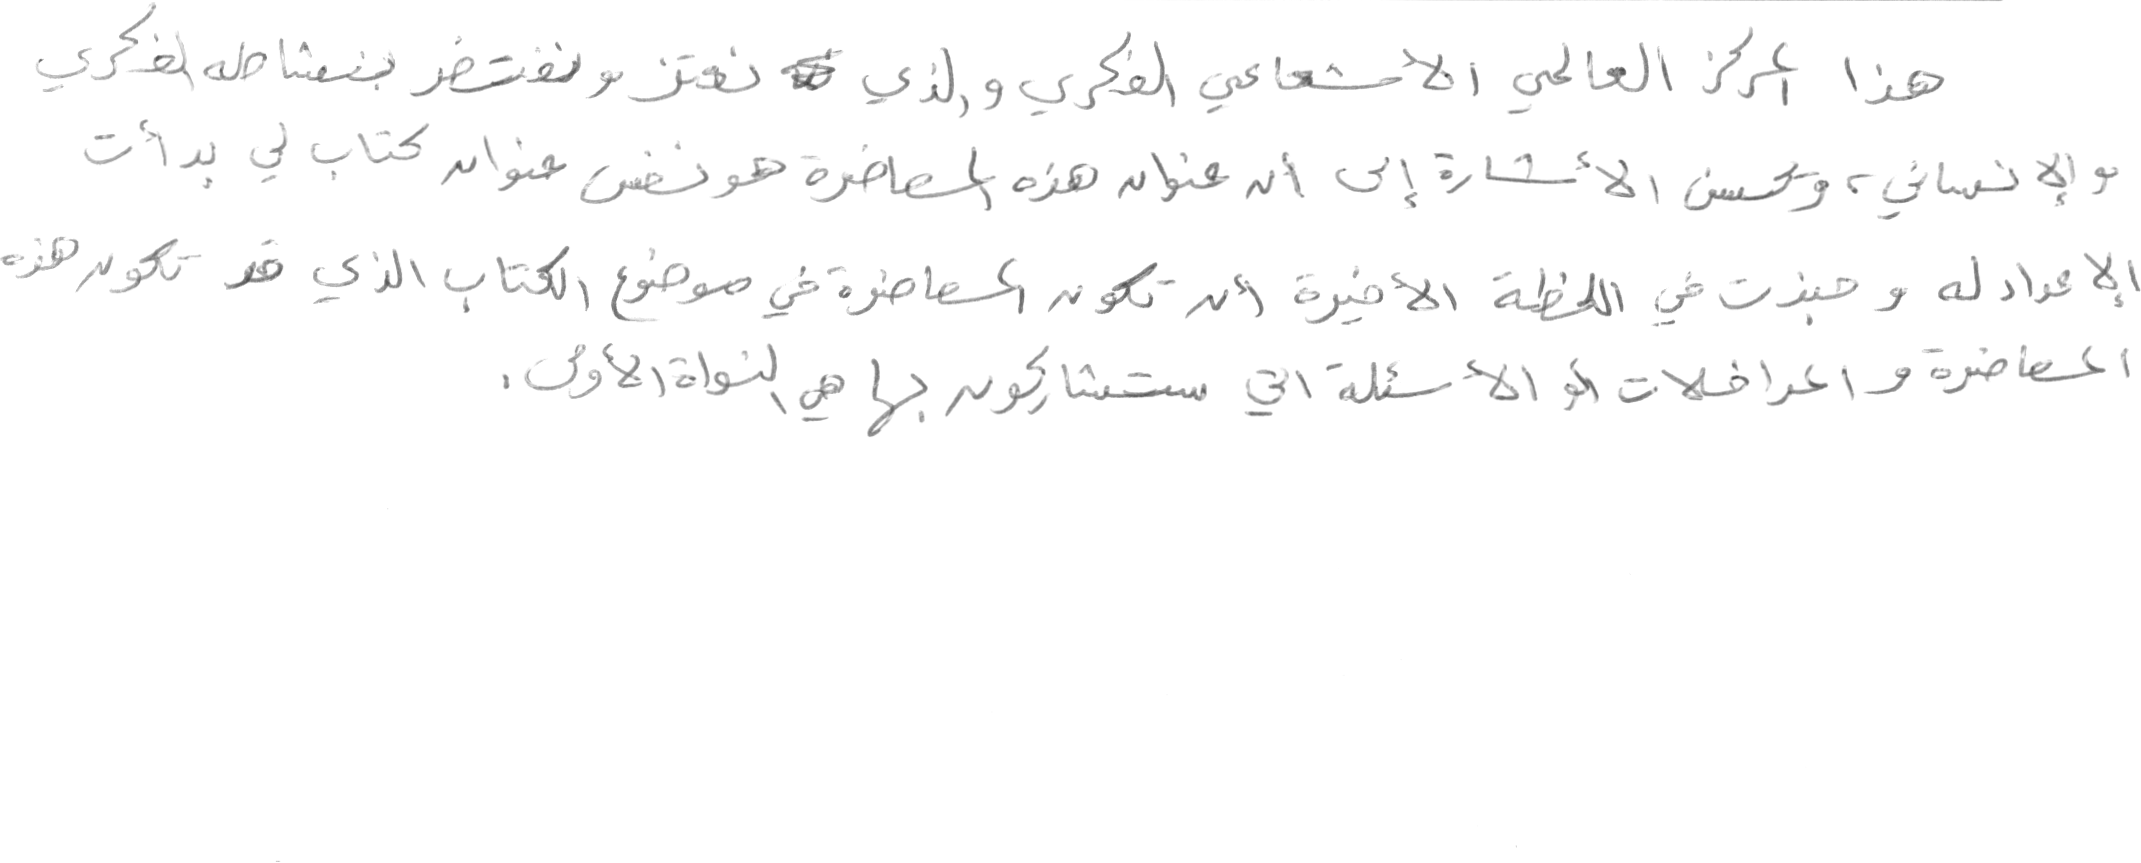 هذا المركز العالمي الأشعاعي الفكري والذي نعتز ونفتخر بنشاطه الفكري
والإنساني، ويحسن الأشارة إلى أن عنوان هذه المحاضرة هو نفس عنوان كتاب لي بدأت
الإعداد له وحبذت في اللحظة الأخيرة أن تكون المحاضرة في موضوع الكتاب الذي قد تكون هذه
المحاضرة والمداخلات أو الأسئلة التي ستشاركون بها هي النواة الأولى.